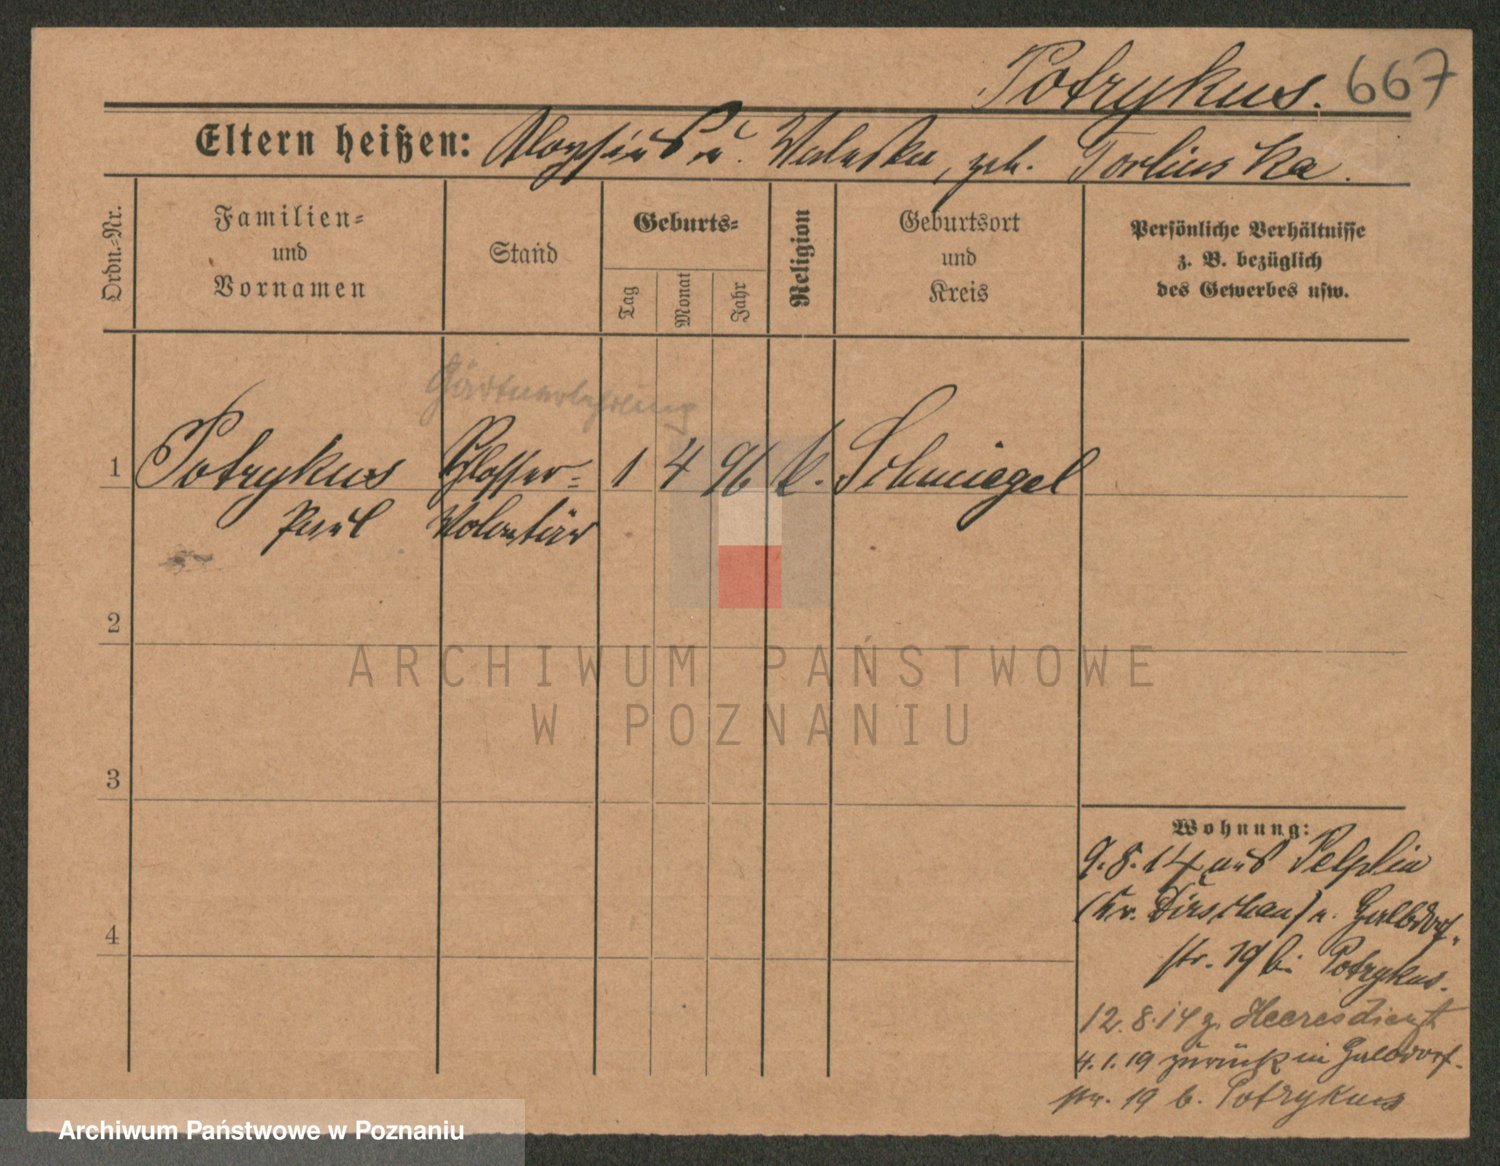 Potrykus. 667
Eltern heißen: Aloysius u. Waleska, geb. Torlinska.
Ordn.-Nr.
Familien-
und
Vornamen
Stand
Geburts-
Tag
Monat
Jahr
Religion
Geburtsort
und
Kreis
Persönliche Verhältnisse
z. B. bezüglich
des Gewerbes usw.
Gärtnerlehrling
1 Potrykus Schlosser- 1 4 96 k. Schmiegel
Paul Volontär
2
ARCHIWUM PAŃSTWOWE
W POZNANIU
3
4
Wohnung:
9.8.14 aus Pelplin
(Kr. Dirschau) n.
str. 19 bei Potrykus.
12.8.14 z. Heeresdienst
4.1.19 zurück in
str. 19 b. Potrykus
Archiwum Państwowe w Poznaniu